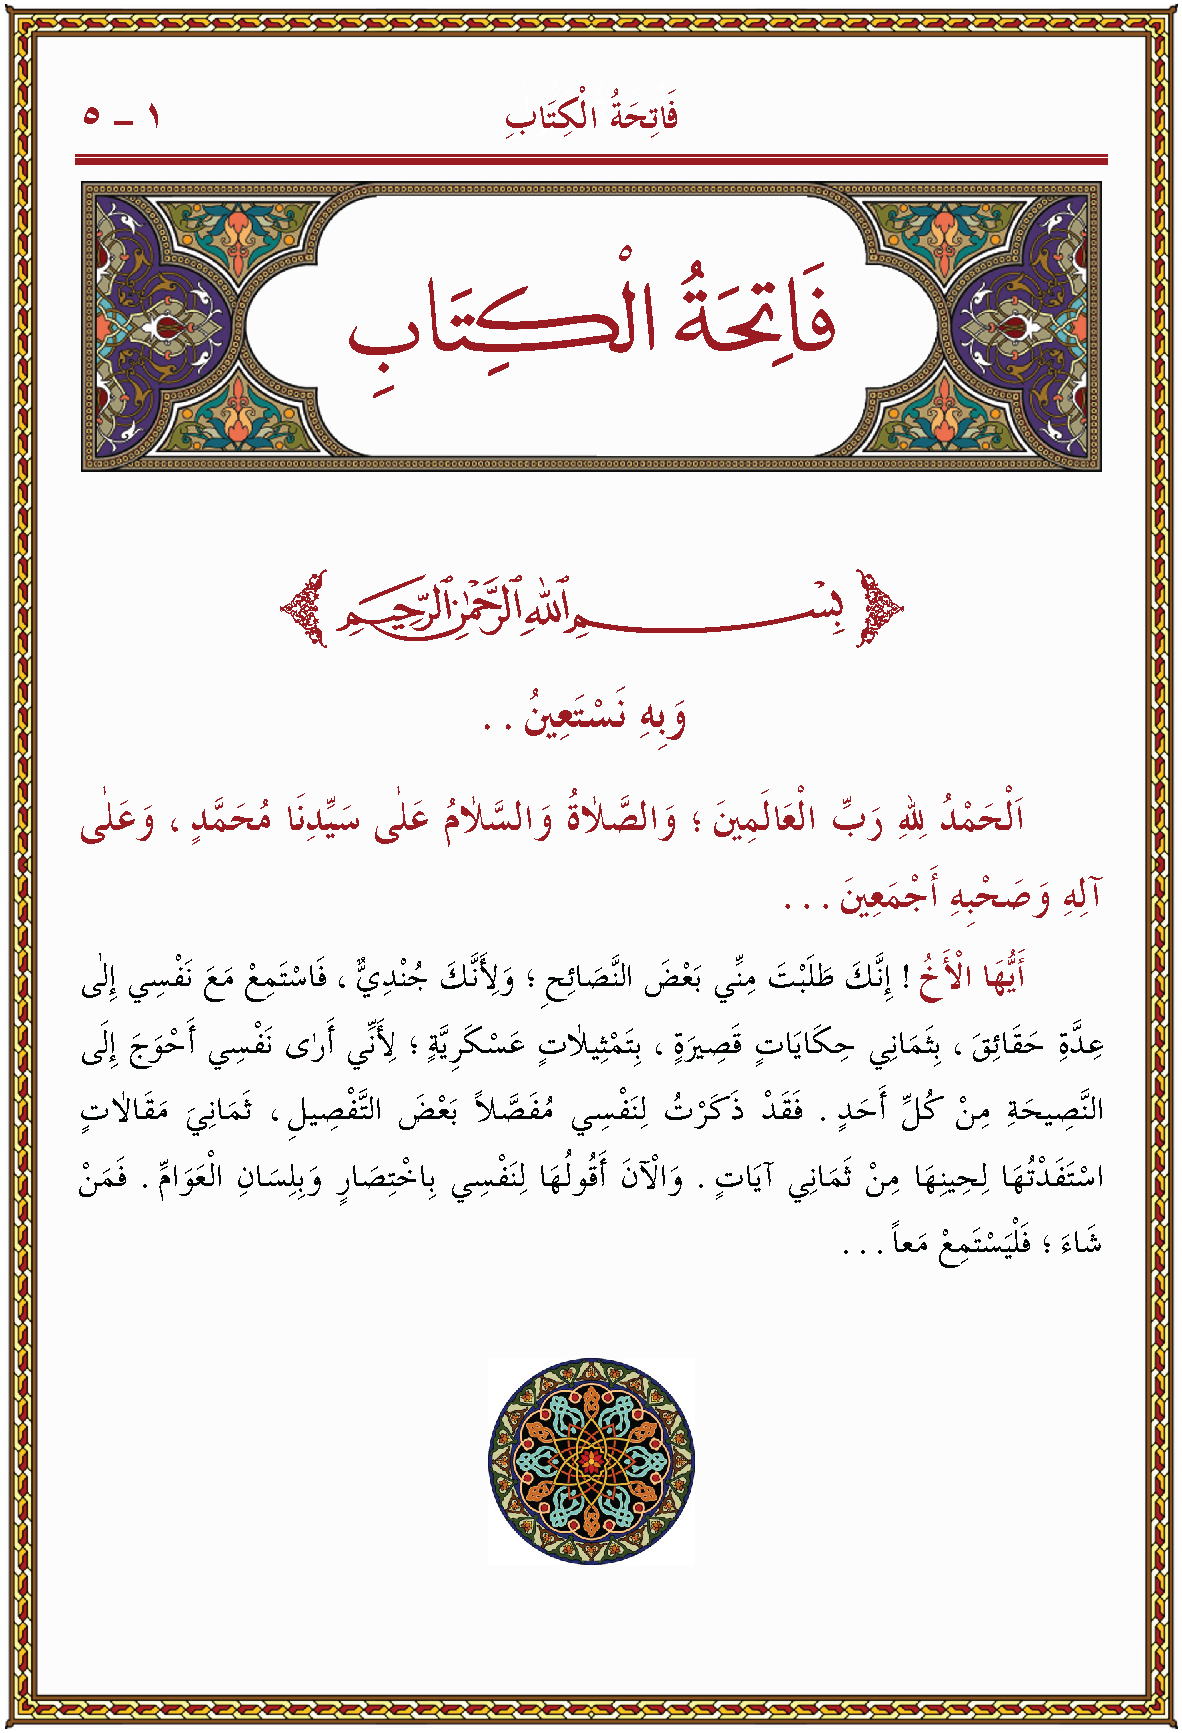 فَاتِحَةُ الْكِتَابِ ١ – ٥
فَاتِحَةُ الْكِتَابِ
بِسْمِ اللهِ الرَّحْمٰنِ الرَّحِيمِ
وَبِهِ نَسْتَعِينُ . .
اَلْحَمْدُ لِلّٰهِ رَبِّ الْعَالَمِينَ ؛ وَالصَّلَاةُ وَالسَّلَامُ عَلٰى سَيِّدِنَا مُحَمَّدٍ ، وَعَلٰى
آلِهِ وَصَحْبِهِ أَجْمَعِينَ . . .
أَيُّهَا الْأَخُ ! إِنَّكَ طَلَبْتَ مِنِّي بَعْضَ النَّصَائِحِ ؛ وَلِأَنَّكَ جُنْدِيٌّ ، فَاسْتَمِعْ مَعَ نَفْسِي إِلٰى
عِدَّةِ حَقَائِقَ ، بِثَمَانِي حِكَايَاتٍ قَصِيرَةٍ ، بِتَمْثِيلَاتٍ عَسْكَرِيَّةٍ ؛ لِأَنِّي أَرٰى نَفْسِي أَحْوَجَ إِلَى
النَّصِيحَةِ مِنْ كُلِّ أَحَدٍ . فَقَدْ ذَكَرْتُ لِنَفْسِي مُفَصَّلاً بَعْضَ التَّفْصِيلِ ، ثَمَانِيَ مَقَالَاتٍ
اسْتَفَدْتُهَا لِحِينِهَا مِنْ ثَمَانِي آيَاتٍ . وَالْآنَ أَقُولُهَا لِنَفْسِي بِاخْتِصَارٍ وَبِلِسَانِ الْعَوَامِّ . فَمَنْ
شَاءَ ؛ فَلْيَسْتَمِعْ مَعاً . . .